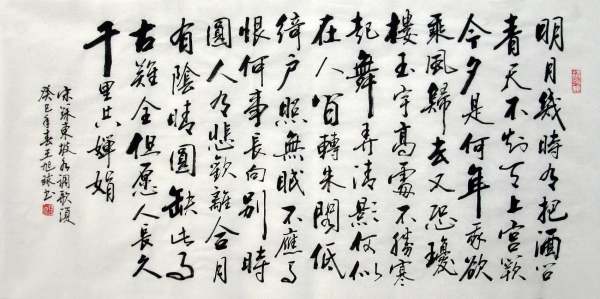 明月幾時有把酒問
青天不知天上宮闕
今夕是何年我欲
乘風歸去又恐瓊
樓玉宇高處不勝寒
起舞弄清影何似
在人間轉朱閣低
綺戶照無眠不應有
恨何事長向別時
圓人有悲歡離合月
有陰晴圓缺此事
古難全但愿人長久
千里共嬋娟
宋蘇東坡水調歌頭
癸巳年春王旭書